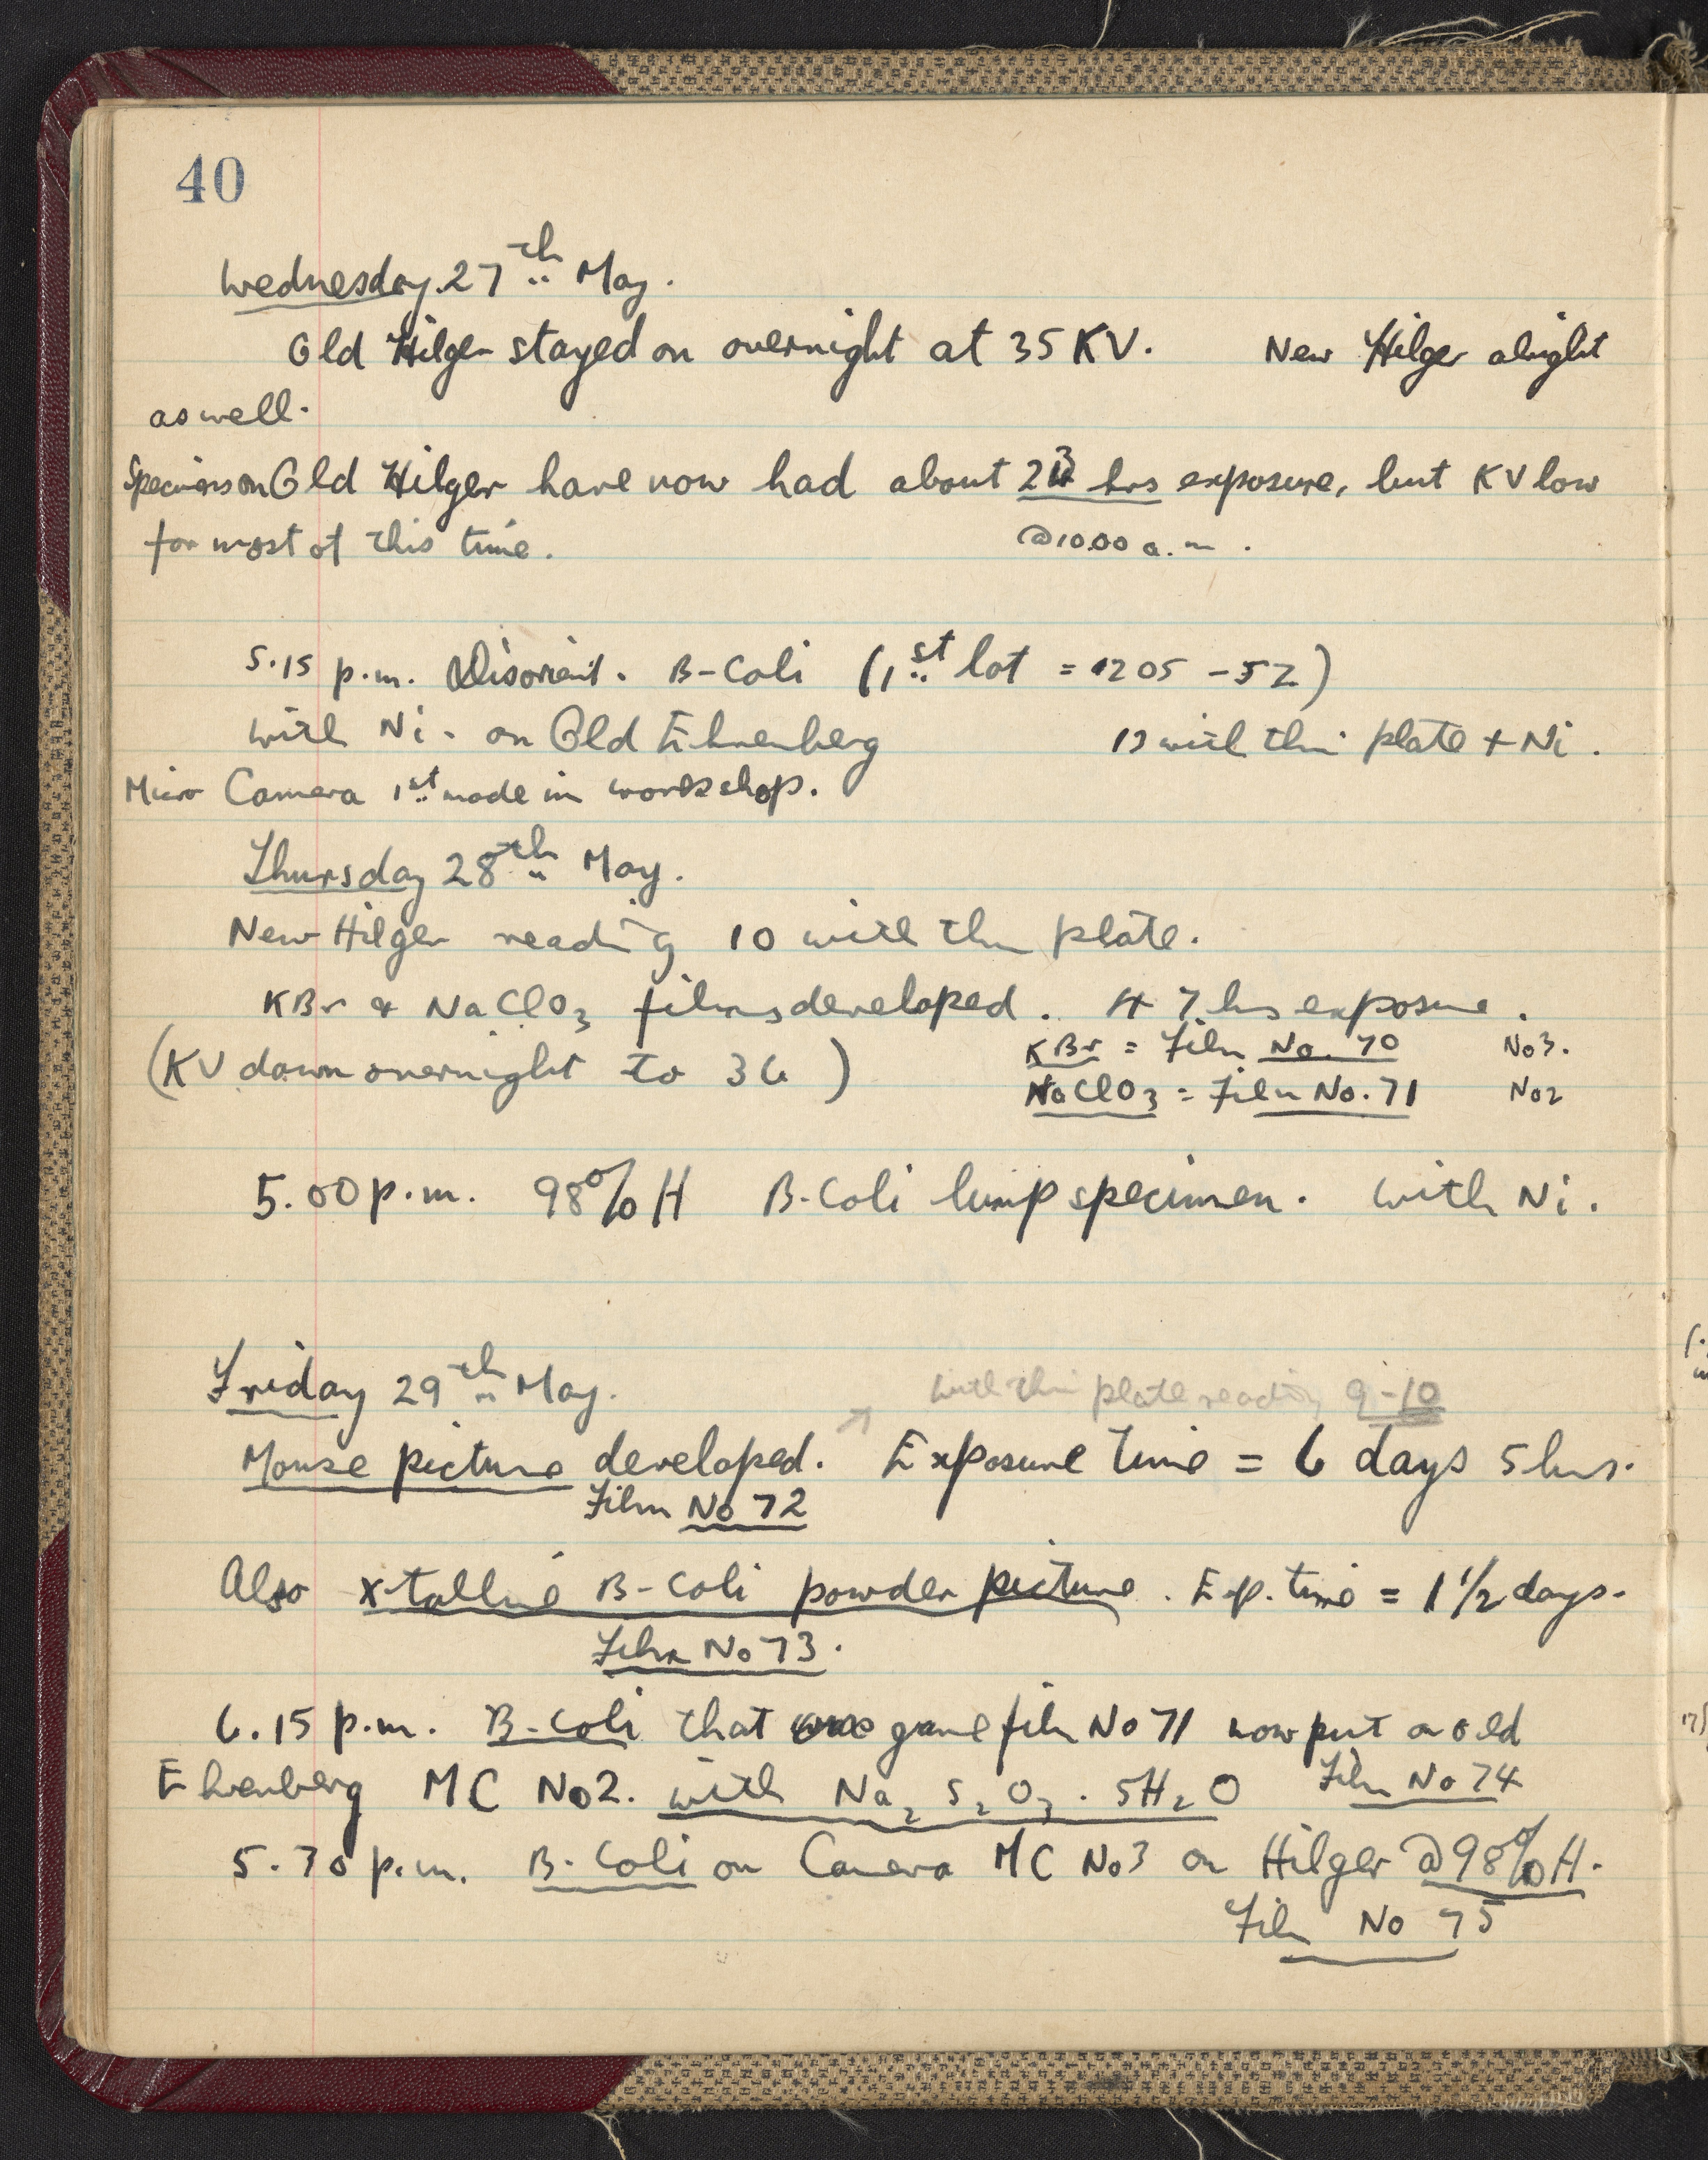 40
Wednesday. 27th May.
Old Hilger stayed on overnight at 35 KV. New Hilger alright
as well.
Specimens on Old Hilger have now had about 23 hrs exposure, but KV low
for most of this time. @ 10.00 a.m.
5.15 p.m. Disorient. B-Coli (1st lot = 1205 - 52)
with Ni - on Old Ehrenberg 12 with thin plate + Ni.
Micro Camera 1st made in workshop.
Thursday 28th May.
New Hilger reading 10 with thin plate.
KBr & NaClO3 films developed. 47 hrs exposure.
KBr = Film No. 70 No3.
(KV down overnight to 36)
NaClO3 = Film No. 71 No2
5.00 p.m. 98% H B-Coli lump specimen. With Ni.
Friday 29th May. with thin plate reading 9-10
Mouse picture developed. Exposure time = 6 days 5 hrs.
Film No 72
Also x-talline B-Coli powder picture. Exp. time = 1 1/2 days.
Film No 73.
6.15 p.m. B-Coli that gave film No 71 now put on old
Ehrenberg MC No2. with Na2 S2 O3 . 5H2O Film No 74
5.30 p.m. B-Coli on Camera MC No3 on Hilger @ 98% H.
Film No 75